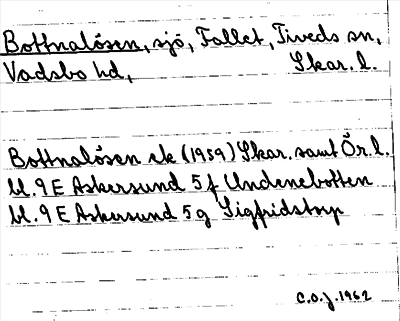 Bottnalösen, sjö, Fallet, Tiveds sn,
Vadsbo hd, Skar. l.
Bottnalösen ek (1959) Skar. samt Ör. l.
bl. 9 E Askersund 5 f Undenebotten
bl. 9 E Askersund 5 g Sigfridstorp
C.O.J. 1962